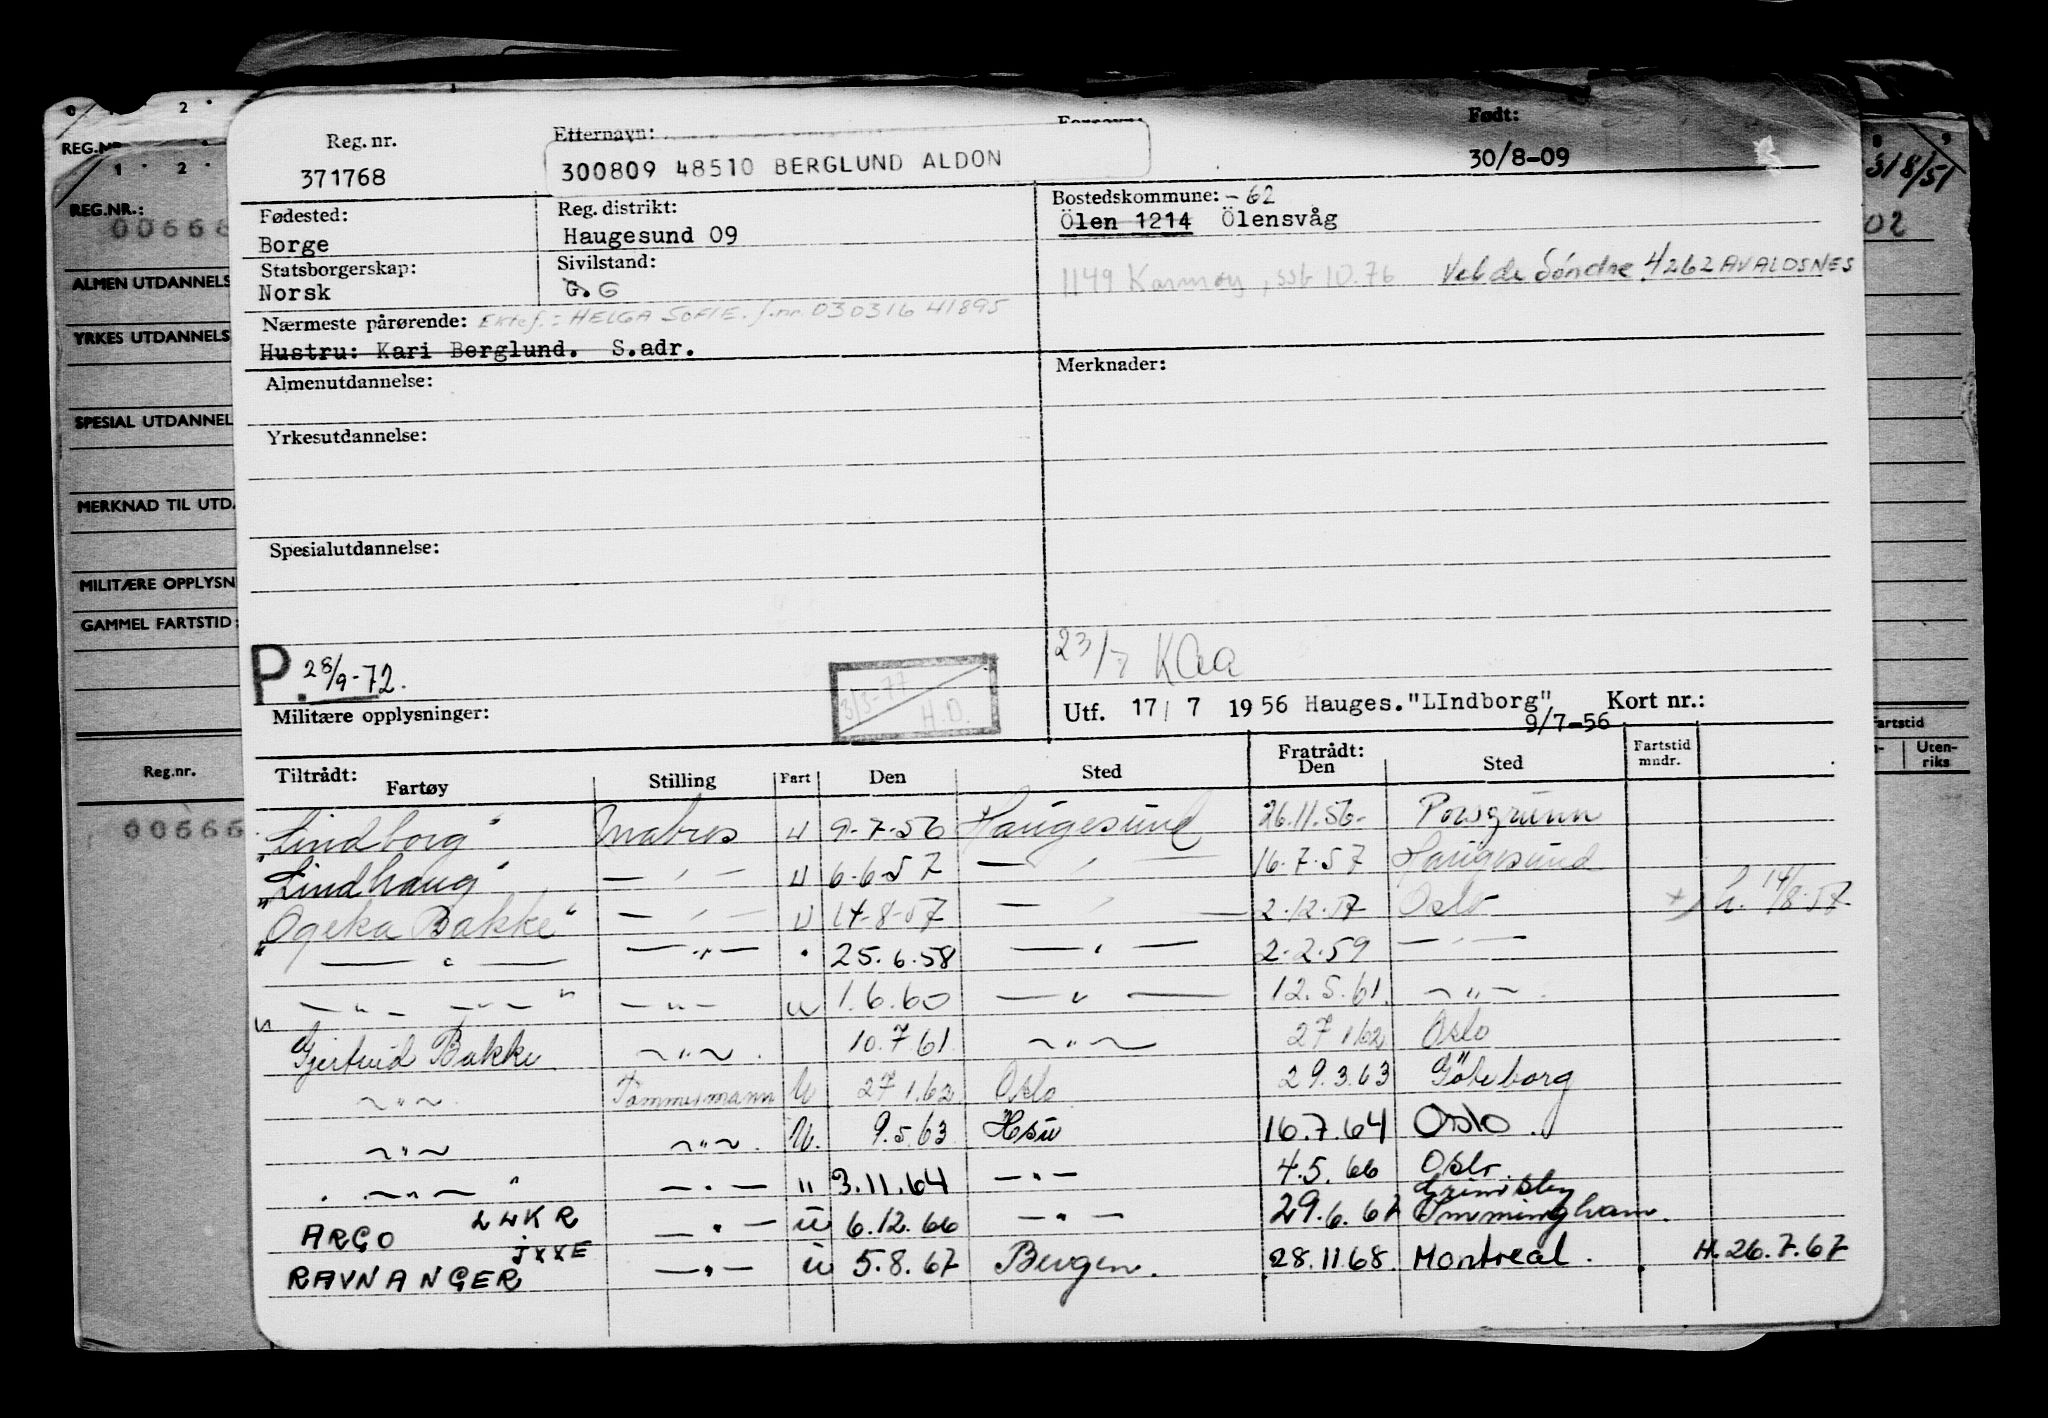 Reg. nr. Etternavn: Født:
371768 300809 48510 BERGLUND ALDON 30/8-09
Fødested: Reg. distrikt: Bostedskommune: -62
Borge Haugesund 09 Ölen 1214 Ölensvåg
Statsborgerskap: Sivilstand:
Norsk G. G 1149 Karmøy, ssb 10.76 Velde Söndre. 4262 AVALDSNES
Nærmeste pårørende: Ektef.: HELGA SOFIE. f.nr. 030316 41895
Hustru: Kari Berglund. S.adr.
Almenutdannelse: Merknader:
Yrkesutdannelse:
Spesialutdannelse:
23/7 KAa
P. 28/9-72. 3/3-77 H.D.
Militære opplysninger: Utf. 17/7 1956 Hauges."LIndborg", Kort nr.:
9/7-56
Tiltrådt: Fratrådt: Fartstid mndr.
Fartøy Stilling Fart Den Sted Den Sted
"Lindborg" Matros U 9-7-56 Haugesund 26.11.56- Porsgrunn
"Lindhaug" — " — U 6-6-57 — " — 16.7.57 Haugesund
"Ogeka Bakke" — " — U 14-8-57 — " — 2.12.57 Oslo h. 14/8-57
— " — — " — " 25.6.58 — " — 2.2.59 — " —
— " — — " — " — u 1.6.60 — " — 12.5.61. — " —.
" Gjertrud Bakke — " —. 10.7 61. — " — 27 1.62 Oslo
— " —. Tømmermann U 27 1.62 Oslo 29.3.63 Göteborg
— " — — " —. U. 9.5.63 Hsu 16.7.64 Oslo.
— " — " — " — " 3.11.64 — " — 4.5.66 Oslo.
Grimsby
ARGO LLKR — " — u 6.12.66 — " — 29.6.67 Immingham.
RAVNANGER JXXE — " — u 5.8.67 Bergen. 28.11.68. Montreal. H.26.7.67
0 2
REG.NR
1 2
REG.NR.:
00666
ALMEN UTDANNELS
YRKES UTDANNELS
SPESIAL UTDANNEL
MERKNAD TIL UTD.
MILITÆRE OPPLYSN
GAMMEL FARTSTID:
Reg.nr.
00666
8 9
31/8/51
02
artstid
Uten-
riks